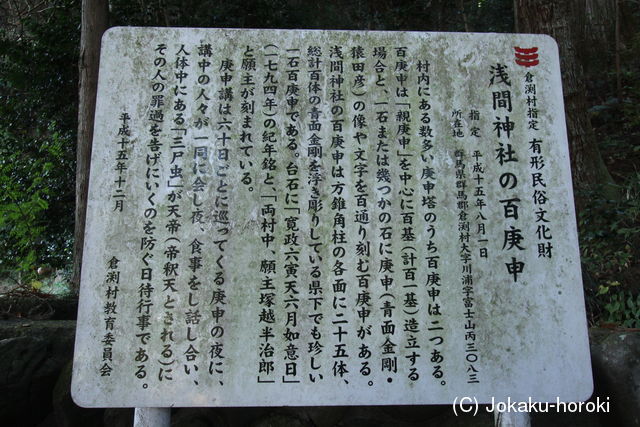 倉渕村指定 有形民俗文化財
浅間神社の百庚申
指定 平成十五年八月一日
所在地 群馬県群馬郡倉渕村大字川浦字富士山丙三〇八三
村内にある数多い庚申塔のうち百庚申は二つある。
百庚申は「親庚申」を中心に百基(計百一基)造立する
場合と、一石または幾つかの石に庚申(青面金剛・
猿田彦)の像や文字を百通り刻む百庚申がある。
浅間神社の百庚申は方錐角柱の各面に二十五体、
総計百体の青面金剛を浮き彫りしている県下でも珍しい
一石百庚申である。台石に「寛政六寅天六月如意日」
(一七九四年)の紀年銘と「両村中、願主塚越半治郎」
と願主が刻まれている。
庚申講は六十日ごとに巡ってくる庚申の夜に、
講中の人々が一同に会し夜、食事をし話し合い、
人体中にある「三尸虫」が天帝(帝釈天とされる)に
その人の罪過を告げにいくのを防ぐ日待行事である。
平成十五年十二月
倉渕村教育委員会
(C) Jokaku-horoki.